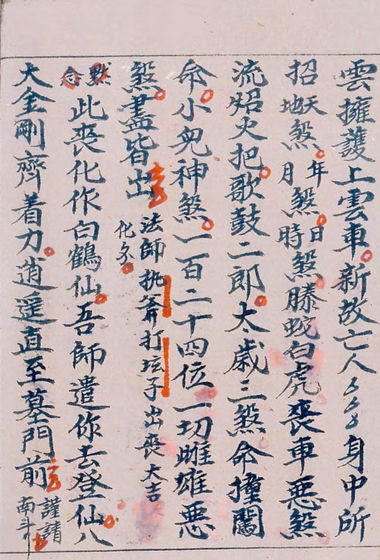 雲擁護上雲車新故亡人〻〻〻身中所
招天煞地煞年煞月煞日煞時煞螣蛇白虎喪車惡煞
流焰火把歌鼓二郎太歲三煞命撞關
命小兒神煞一百二十四位一切雌雄惡
煞盡皆出 法師執斧打 子出喪大吉 化
默念 此喪化作白鶴仙吾師遣你去登仙八
大金剛齊着力逍遥直至墓門前 謹請南斗